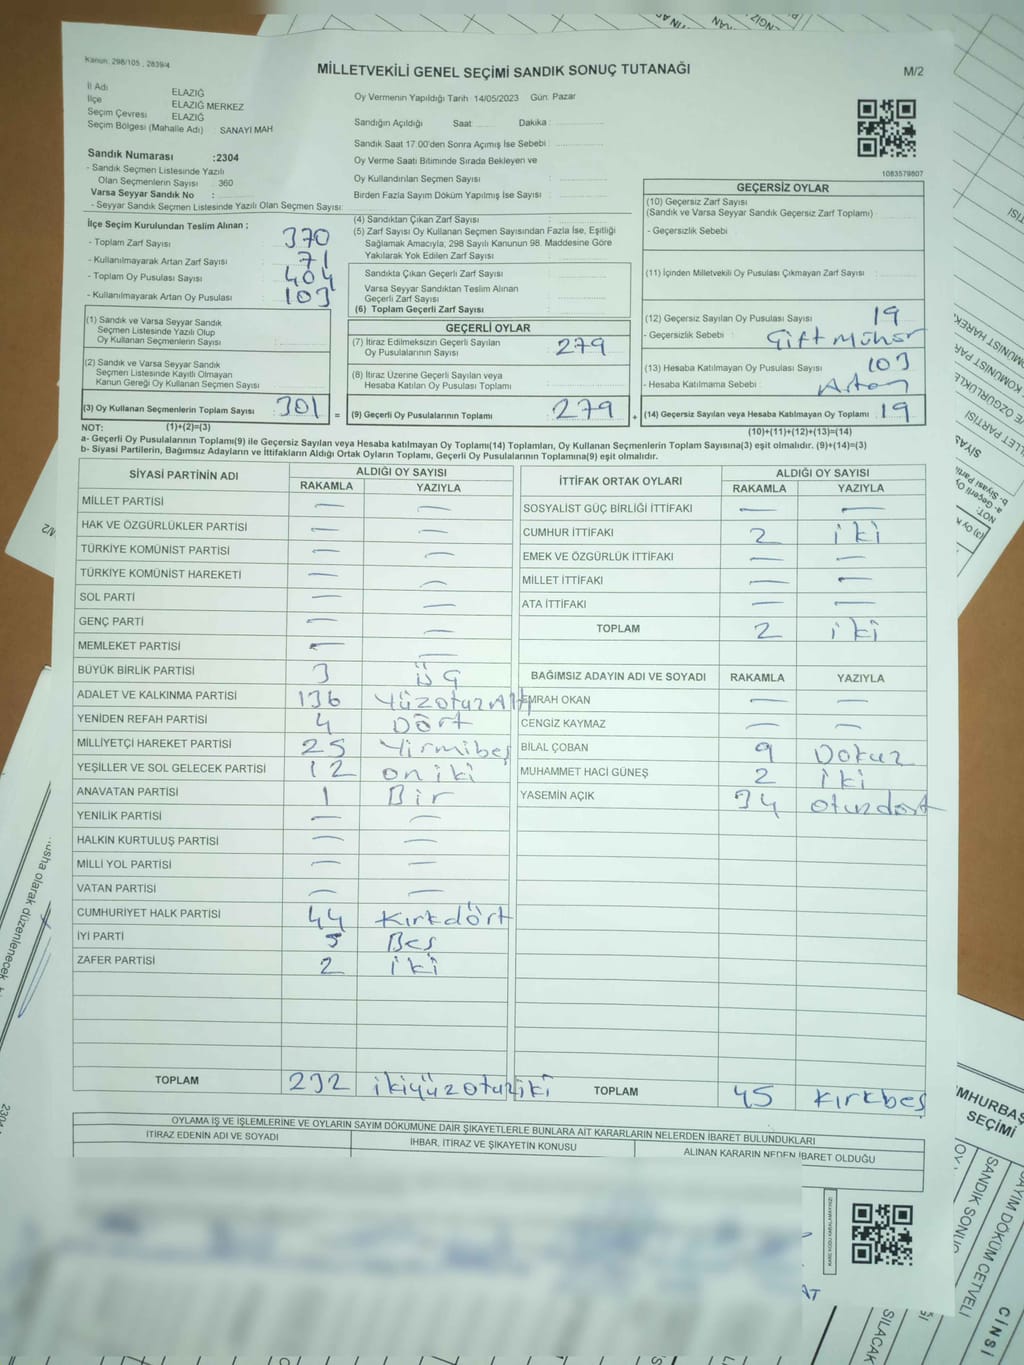 Kanun. 298/105 , 2839/4
MİLLETVEKİLİ GENEL SEÇİMİ SANDIK SONUÇ TUTANAĞI
M/2
İl Adı ELAZIĞ
İlçe ELAZIĞ MERKEZ
Seçim Çevresi ELAZIĞ
Seçim Bölgesi (Mahalle Adı) : SANAYİ MAH
Sandık Numarası :2304
- Sandık Seçmen Listesinde Yazılı
Olan Seçmenlerin Sayısı : 360
Varsa Seyyar Sandık No :
- Seyyar Sandık Seçmen Listesinde Yazılı Olan Seçmen Sayısı:
Oy Vermenin Yapıldığı Tarih 14/05/2023 Gün. Pazar
Sandığın Açıldığı Saat Dakika :
Sandık Saat 17.00'den Sonra Açımış İse Sebebi :
Oy Verme Saati Bitiminde Sırada Bekleyen ve
Oy Kullandırılan Seçmen Sayısı :
Birden Fazla Sayım Döküm Yapılmış İse Sayısı :
1083579807
İlçe Seçim Kurulundan Teslim Alınan ;
- Toplam Zarf Sayısı : 370
- Kullanılmayarak Artan Zarf Sayısı : 71
- Toplam Oy Pusulası Sayısı : 404
- Kullanılmayarak Artan Oy Pusulası : 103
(1) Sandık ve Varsa Seyyar Sandık
Seçmen Listesinde Yazılı Olup
Oy Kullanan Seçmenlerin Sayısı :
(2) Sandık ve Varsa Seyyar Sandık
Seçmen Listesinde Kayıtlı Olmayan
Kanun Gereği Oy Kullanan Seçmen Sayısı :
(3) Oy Kullanan Seçmenlerin Toplam Sayısı : 301 =
(4) Sandıktan Çıkan Zarf Sayısı :
(5) Zarf Sayısı Oy Kullanan Seçmen Sayısından Fazla İse, Eşitliği
Sağlamak Amacıyla, 298 Sayılı Kanunun 98. Maddesine Göre
Yakılarak Yok Edilen Zarf Sayısı :
Sandıkta Çıkan Geçerli Zarf Sayısı :
Varsa Seyyar Sandıktan Teslim Alınan
Geçerli Zarf Sayısı :
(6) Toplam Geçerli Zarf Sayısı :
GEÇERLİ OYLAR
(7) İtiraz Edilmeksizin Geçerli Sayılan
Oy Pusulalarının Sayısı : 279
(8) İtiraz Üzerine Geçerli Sayılan veya
Hesaba Katılan Oy Pusulası Toplamı :
(9) Geçerli Oy Pusulalarının Toplamı : 279 +
GEÇERSİZ OYLAR
(10) Geçersiz Zarf Sayısı
(Sandık ve Varsa Seyyar Sandık Geçersiz Zarf Toplamı) :
- Geçersizlik Sebebi :
(11) İçinden Milletvekili Oy Pusulası Çıkmayan Zarf Sayısı :
(12) Geçersiz Sayılan Oy Pusulası Sayısı : 19
- Geçersizlik Sebebi : Çift Mühür
(13) Hesaba Katılmayan Oy Pusulası Sayısı : 103
- Hesaba Katılmama Sebebi : Artan
(14) Geçersiz Sayılan veya Hesaba Katılmayan Oy Toplamı : 19
NOT: (1)+(2)=(3) (10)+(11)+(12)+(13)=(14)
a- Geçerli Oy Pusulalarının Toplamı(9) ile Geçersiz Sayılan veya Hesaba katılmayan Oy Toplamı(14) Toplamları, Oy Kullanan Seçmenlerin Toplam Sayısına(3) eşit olmalıdır. (9)+(14)=(3)
b- Siyasi Partilerin, Bağımsız Adayların ve İttifakların Aldığı Ortak Oyların Toplamı, Geçerli Oy Pusulalarının Toplamına(9) eşit olmalıdır.
SİYASİ PARTİNİN ADI ALDIĞI OY SAYISI
RAKAMLA YAZIYLA
MİLLET PARTİSI — —
HAK VE ÖZGÜRLÜKLER PARTİSİ — —
TÜRKİYE KOMÜNİST PARTİSİ — —
TÜRKİYE KOMÜNİST HAREKETİ — —
SOL PARTİ — —
GENÇ PARTİ — —
MEMLEKET PARTİSİ — —
BÜYÜK BİRLİK PARTİSİ 3 üç
ADALET VE KALKINMA PARTİSİ 136 YüzotuzAltı
YENİDEN REFAH PARTİSİ 4 Dört
MİLLİYETÇİ HAREKET PARTİSİ 25 Yirmibeş
YEŞİLLER VE SOL GELECEK PARTİSİ 12 on iki
ANAVATAN PARTİSİ 1 Bir
YENİLİK PARTİSİ — —
HALKIN KURTULUŞ PARTİSİ — —
MİLLİ YOL PARTİSİ — —
VATAN PARTİSİ — —
CUMHURİYET HALK PARTİSİ 44 Kırkdört
İYİ PARTİ 5 Beş
ZAFER PARTİSİ 2 iki
TOPLAM 232 ikiyüzotuziki
İTTİFAK ORTAK OYLARI ALDIĞI OY SAYISI
RAKAMLA YAZIYLA
SOSYALİST GÜÇ BİRLİĞİ İTTİFAKI — —
CUMHUR İTTİFAKI 2 iki
EMEK VE ÖZGÜRLÜK İTTİFAKI — —
MİLLET İTTİFAKI — —
ATA İTTİFAKI — —
TOPLAM 2 iki
BAĞIMSIZ ADAYIN ADI VE SOYADI RAKAMLA YAZIYLA
EMRAH OKAN — —
CENGİZ KAYMAZ — —
BİLAL ÇOBAN 9 Dokuz
MUHAMMET HACI GÜNEŞ 2 iki
YASEMİN AÇIK 34 otuzdört
TOPLAM 45 kırkbeş
OYLAMA İŞ VE İŞLEMLERİNE VE OYLARIN SAYIM DÖKÜMÜNE DAİR ŞİKAYETLERLE BUNLARA AİT KARARLARIN NELERDEN İBARET BULUNDUKLARI
İTİRAZ EDENİN ADI VE SOYADI İHBAR, İTİRAZ VE ŞİKAYETİN KONUSU ALINAN KARARIN NEDEN İBARET OLDUĞU